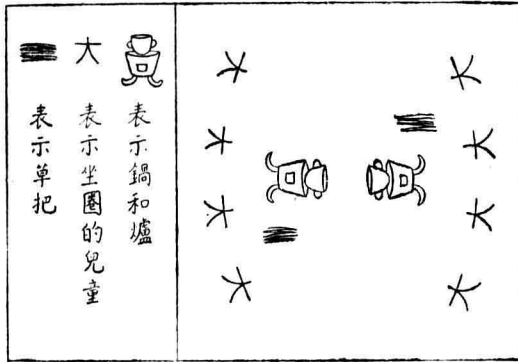 表示鍋和爐
表示坐圈的兒童
表示草把